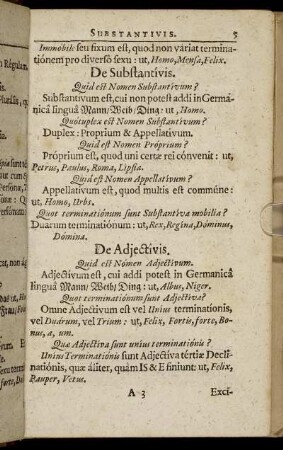 SUBSTANTIVIS. 5
Immobile seu fixum est, quod non váriat termina-
tiónem pro divérsô sexu: ut, Homo, Mensa, Felix.
De Substantivis.
Quid est Nomen Substantivum?
Substantivum est, cui non potest addi in Germa-
nicâ linguâ Mann/Weib/Ding: ut, Homo.
Quótuplex est Nomen Substantivum?
Duplex: Proprium & Appellativum.
Quid est Nomen Próprium?
Próprium est, quod uni certæ rei cónvenit: ut,
Petrus, Paulus, Roma, Lipsia.
Quid est Nomen Appellativum?
Appellativum est, quod multis est commúne:
ut, Homo, Urbs.
Quot terminatiónum sunt Substantiva mobilia?
Duarum terminatiónum: ut, Rex, Regina, Dóminus,
Dómina.
De Adjectivis.
Quid est Nómen Adjectivum.
Adjectivum est, cui addi potest in Germanicâ
linguâ Mann/Weib/Ding: ut, Albus, Niger.
Quot terminatiónum sunt Adjectiva?
Omne Adjectivum est vel Unius terminationis,
vel Duárum, vel Trium: ut, Felix, Fortis, forte, Bo-
nus, a, um.
Quæ Adjectiva sunt unius terminatiónis?
Unius Terminatiónis sunt Adjectiva tértiæ Decli-
natiónis, quæ áliter, quàm IS & E finiunt: ut, Felix,
Pauper, Vetus.
A 3 Exci-